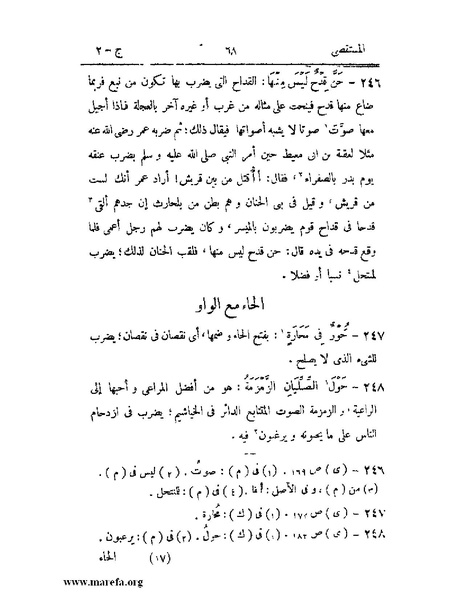 المستقصى ٦٨ ج - ٢
٢٤٦ - حَنَّ قِدْحٌ لَيْسَ مِنْهَا: القداح التى يضرب بها تكون من نبع فربما
ضاع منها قدح فينحت على مثاله من غرب أو غيره آخر بالعجلة فاذا أجيل
معها صوَّت ١ صوتا لا يشبه أصواتها فيقال ذلك؛ ثم ضربه عمر رضى الله عنه
مثلا لعقبة بن ابى معيط حين أمر النبي صلى الله عليه و سلم بضرب عنقه
يوم بدر بالصفراء ٢، فقال: أأقتل من بين قريش! أراد عمر أنك لست
من قريش، و قيل فى بنى الحنان و هم بطن من بلحارث إن جدهم ألقى ٣
قدحا فى قداح قوم يضربون بالميسر، و كان يضرب لهم رجل أعمى فلما
وقع قدحه فى يده قال: حن قدح ليس منها، فلقب الحنان لذلك؛ يضرب
لمتحل ٤ نسبا أو فضلا.
الحاء مع الواو
٢٤٧ - حُوْرٌ فِى مَحَارَةٍ ١: بفتح الحاء و ضمها، أى نقصان فى نقصان؛ يضرب
للشىء الذى لا يصلح.
٢٤٨ - حَوْلَ ١ الصِّلِّيَانِ الزَّمْزَمَةُ: هو من أفضل المراعى و أحبها إلى
الراعية، و الزمزمة الصوت المتتابع الدائر فى الخياشيم؛ يضرب فى ازدحام
الناس على ما يحبونه و يرغبون ٢ فيه.
٢٤٦ - (ى) ص ١٦٩. (١) فى (م): صوتُ. (٢) ليس فى (م).
(٣) من (م)، و فى الأصل: أفا. (٤) فى (م): لمنتحل.
٢٤٧ - (ى) ص ١٧٢. (١) فى (ك): محُارة.
٢٤٨ - (ى) ص ١٨٢. (١) فى (ك): حولُ. (٢) فى (م): يرعبون.
(١٧) الحاء
www.marefa.org